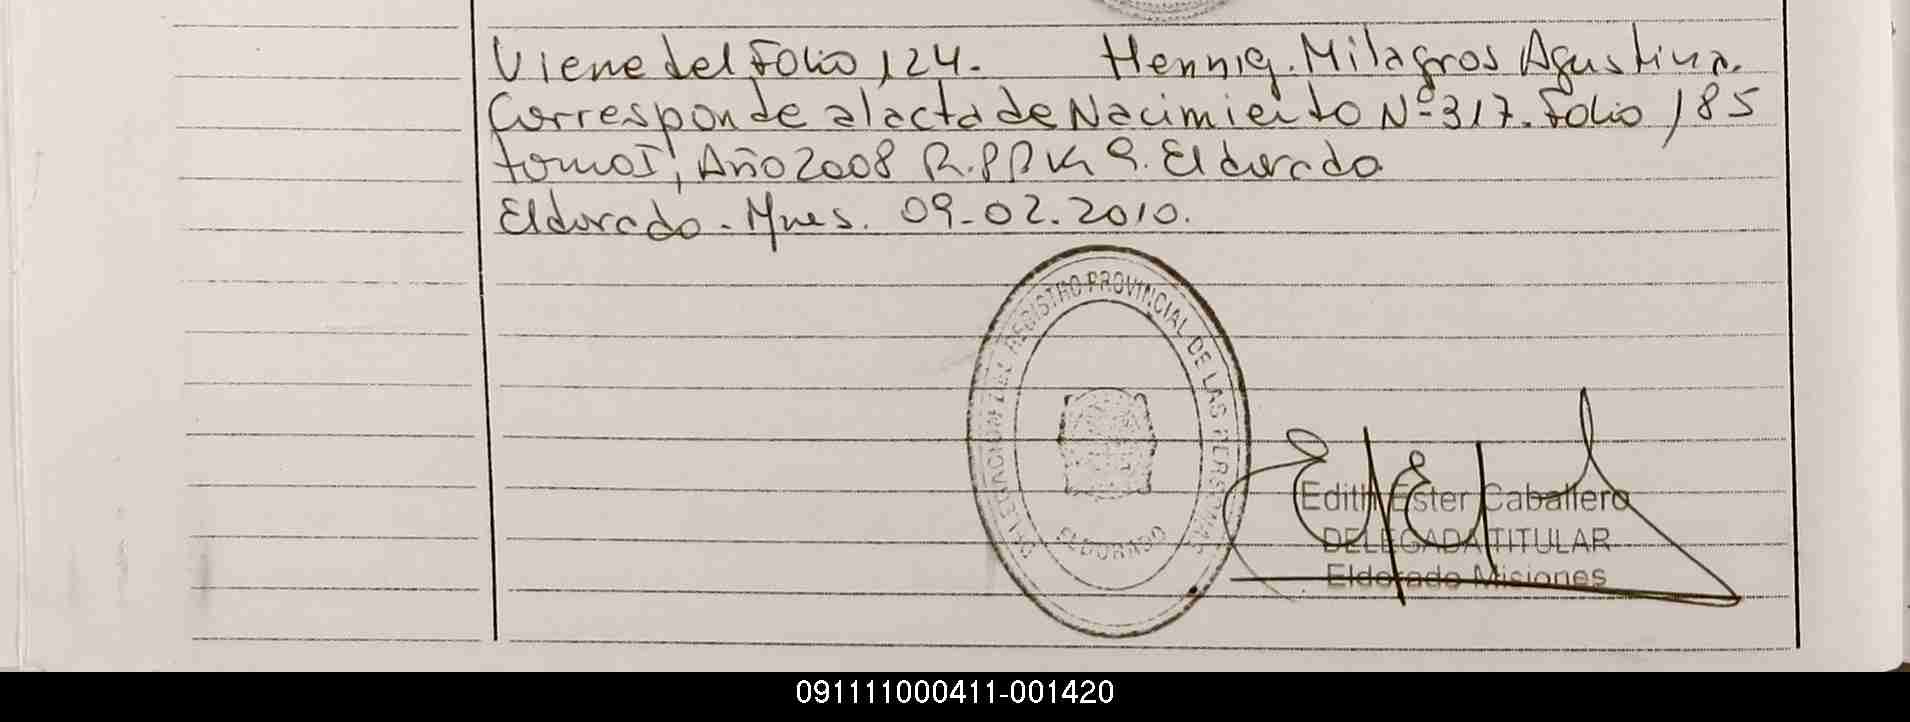 Viene del Folio 124. Hennig. Milagros Agustina.
Corresponde al acta de Nacimiento Nº 317. Folio 185
tomo I, Año 2008 Eldorado
Eldorado - Mnes. 09-02.2010.
DELEGACION DEL REGISTRO PROVINCIAL DE LAS PERSONAS
ELDORADO
Edith Ester Caballero
DELEGADA TITULAR
Eldorado Misiones
091111000411-001420